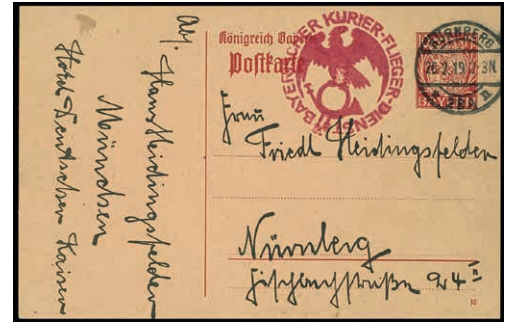 Abs.
Hans Heidingsfelder
München
Hotel Deutscher Kaiser
Königreich Bayern
Postkarte
BAYERISCHER KURIER-FLIEGER-DIENST
NÜRNBERG
BAYERN
Frau
Friedl Heidingsfelder
Nürnberg
Hischbachstraße 24 II